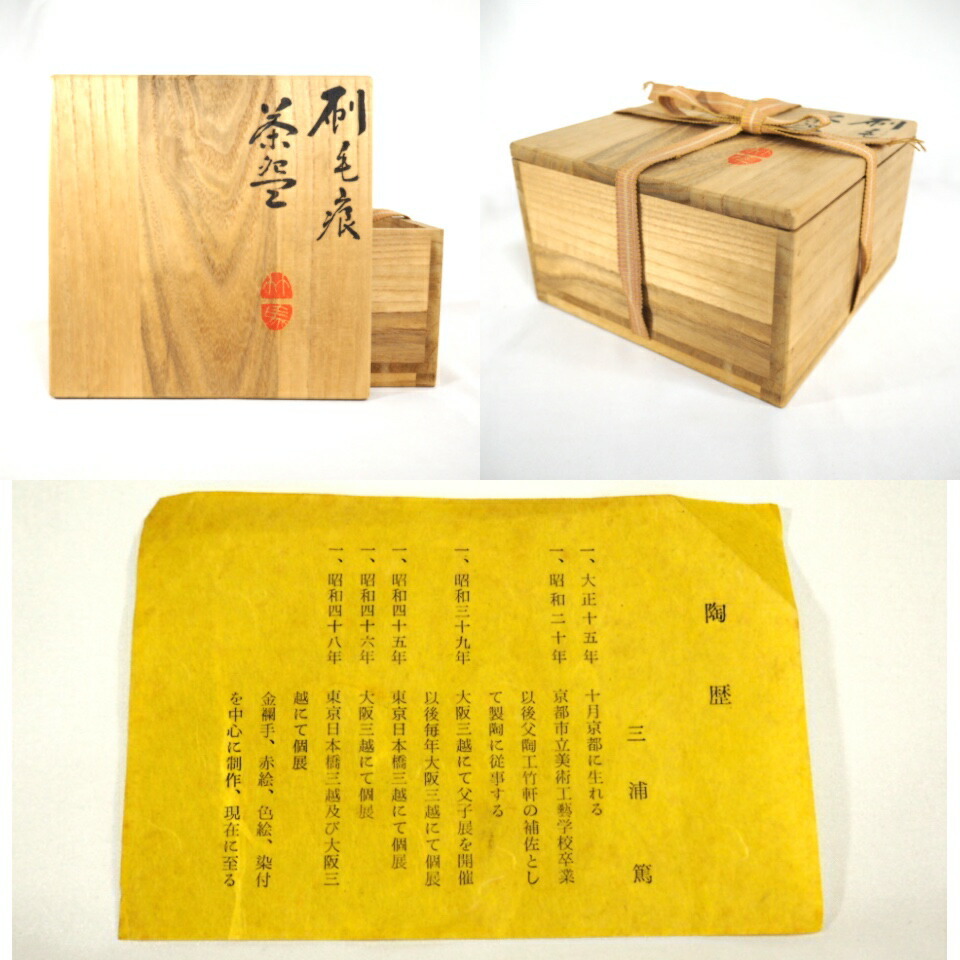 刷毛痕
茶盌
陶歴
三浦篤
一、大正十五年 十月京都に生れる
一、昭和二十年 京都市立美術工藝学校卒業
以後父陶工竹軒の補佐とし
て製陶に従事する
一、昭和三十九年 大阪三越にて父子展を開催
以後毎年大阪三越にて個展
一、昭和四十五年 東京日本橋三越にて個展
一、昭和四十六年 大阪三越にて個展
一、昭和四十八年 東京日本橋三越及び大阪三
越にて個展
金襴手、赤絵、色絵、染付
を中心に制作、現在に至る